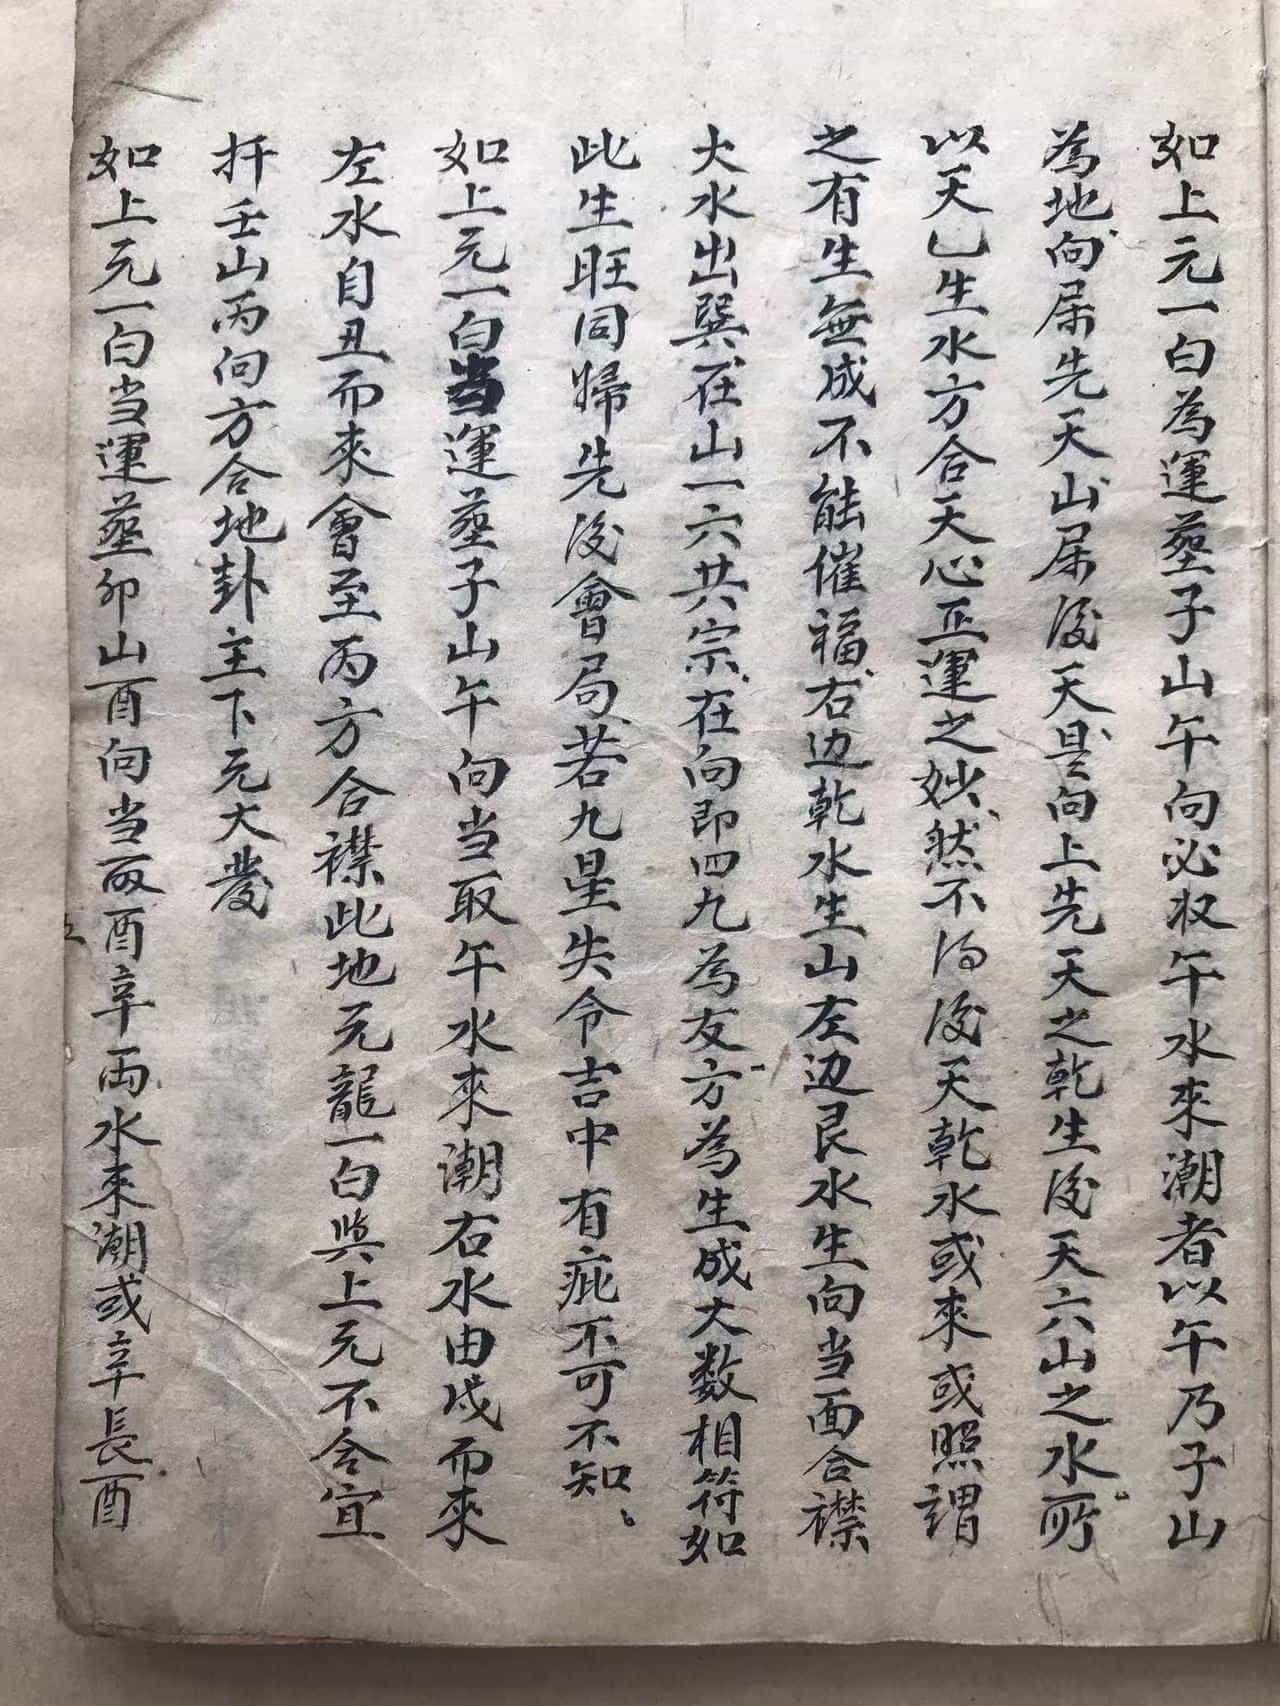 如上元一白為運塟子山午向必收午水來潮者以午乃子山
為地向屬先天山屬後天是向上先天之乾生後天六山之水所
以天乙生水方合天心正運之妙然不得後天乾水或來或照謂
之有生無成不能催福右边乾水生山左边艮水生向当面合襟
大水出巽在山一六共宗在向即四九為友方為生成大数相符如
此生旺同歸先後會局若九星失令吉中有疵不可不知
如上元一白当運塟子山午向当取午水來潮右水由戌而來
左水自丑而來會至丙方合襟此地元龍一白與上元不合宜
扦壬山丙向方合地卦主下元大發
如上元一白当運塟卯山酉向当取酉辛両水來潮或辛長酉